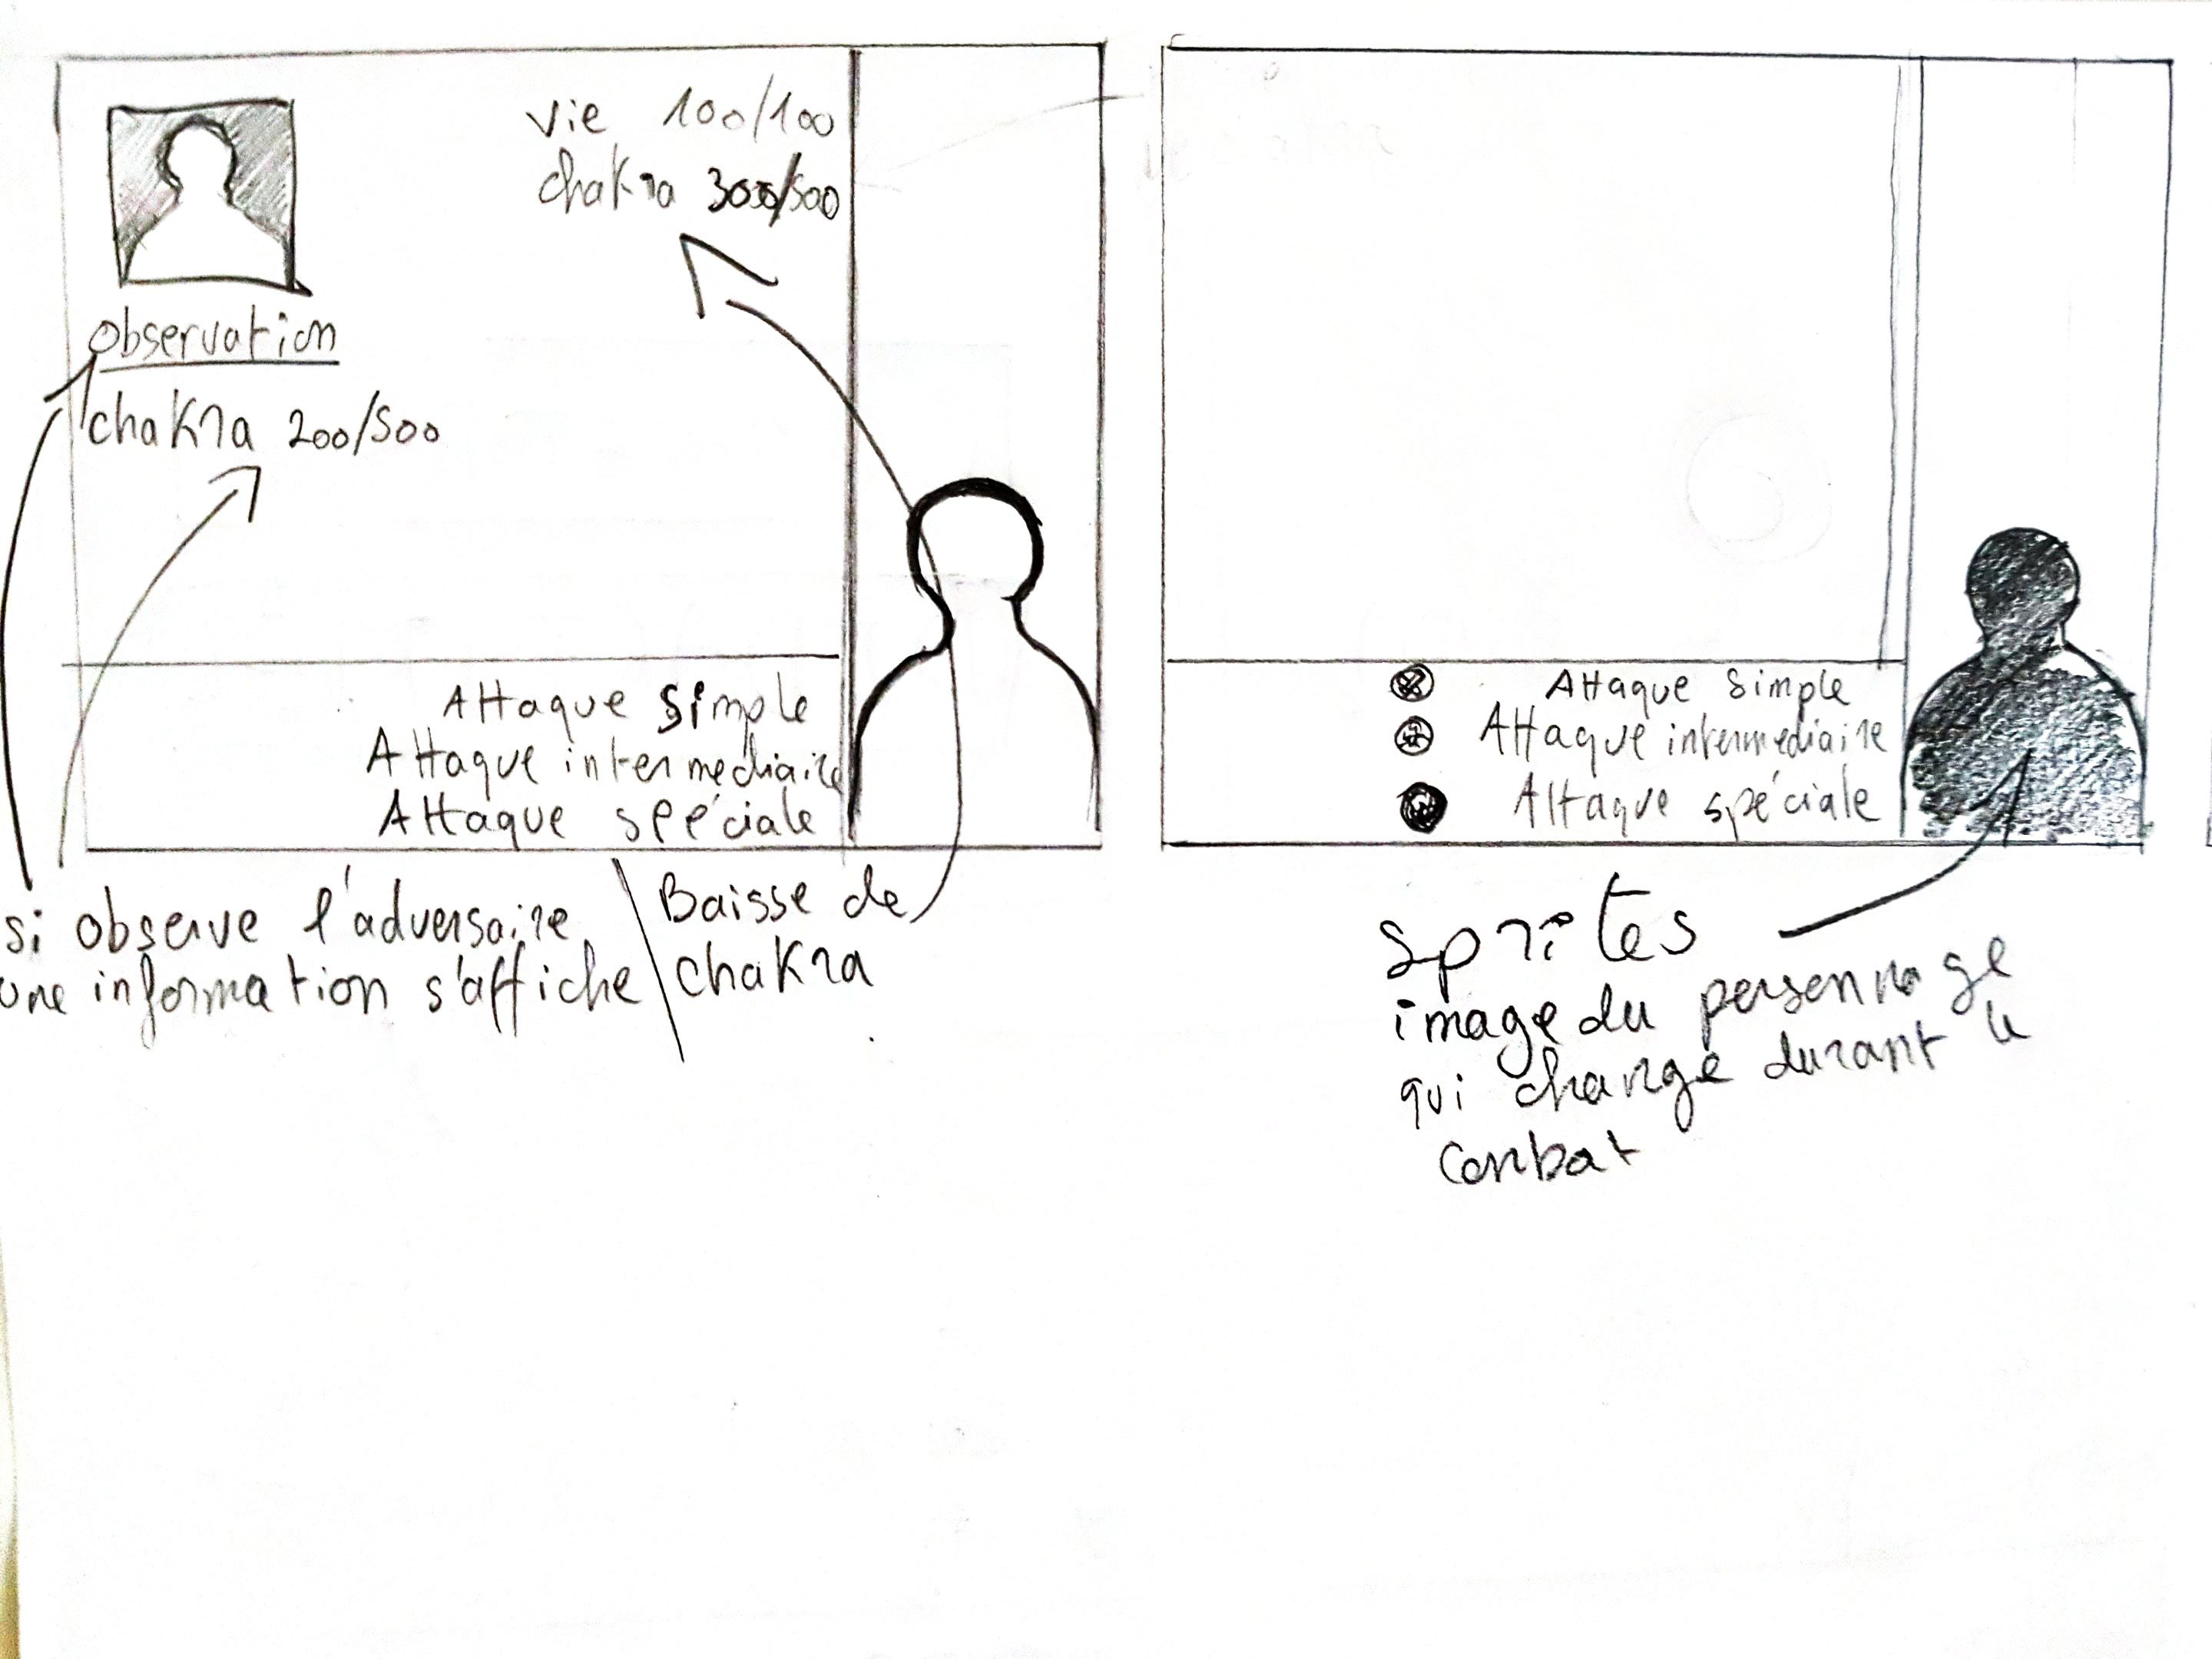 vie 100/100
chakra 300/500
observation
chakra 200/500
Attaque simple
Attaque intermediaire
Attaque spéciale
si observe l'adversaire
une information s'affiche
Baisse de
chakra
Attaque simple
Attaque intermediaire
Attaque spéciale
sprites
image du personnage
qui change durant le
combat